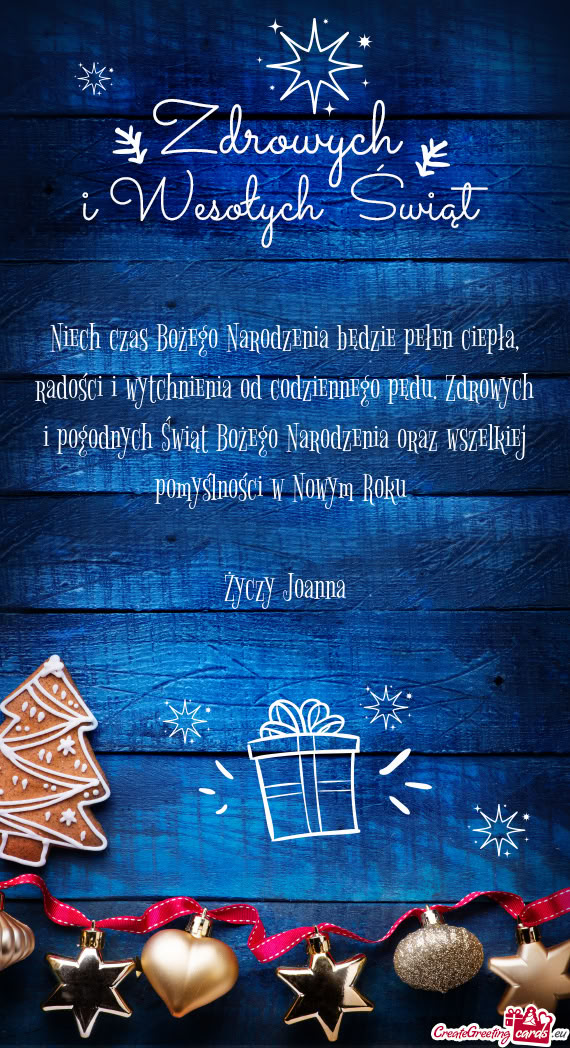 Zdrowych
i Wesołych Świąt
Niech czas Bożego Narodzenia będzie pełen ciepła,
radości i wytchnienia od codziennego pędu. Zdrowych
i pogodnych Świąt Bożego Narodzenia oraz wszelkiej
pomyślności w Nowym Roku
Życzy Joanna
CreateGreetingcards.eu